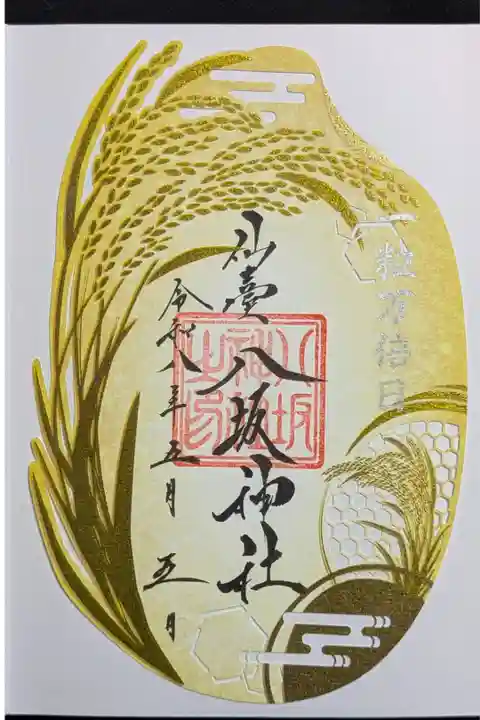 一粒万倍日
八坂神社
令和八年五月五日
八坂
神社
之印